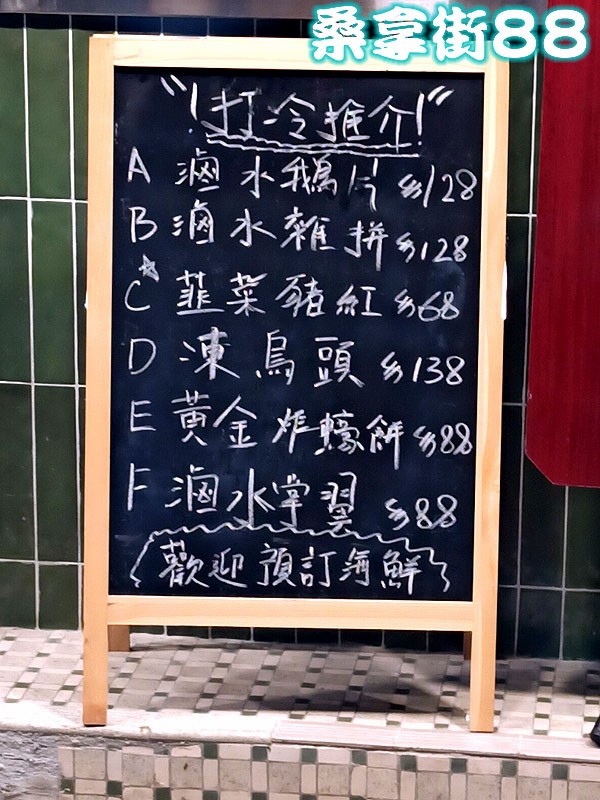 桑享街88
"！打冷推介！"
A 滷水鵝片 $128
B 滷水雜拼 $128
C 韮菜豬紅 $68
D 凍烏頭 $138
E 黃金炸蠔餅 $88
F 滷水掌翼 $88
歡迎預訂海鮮